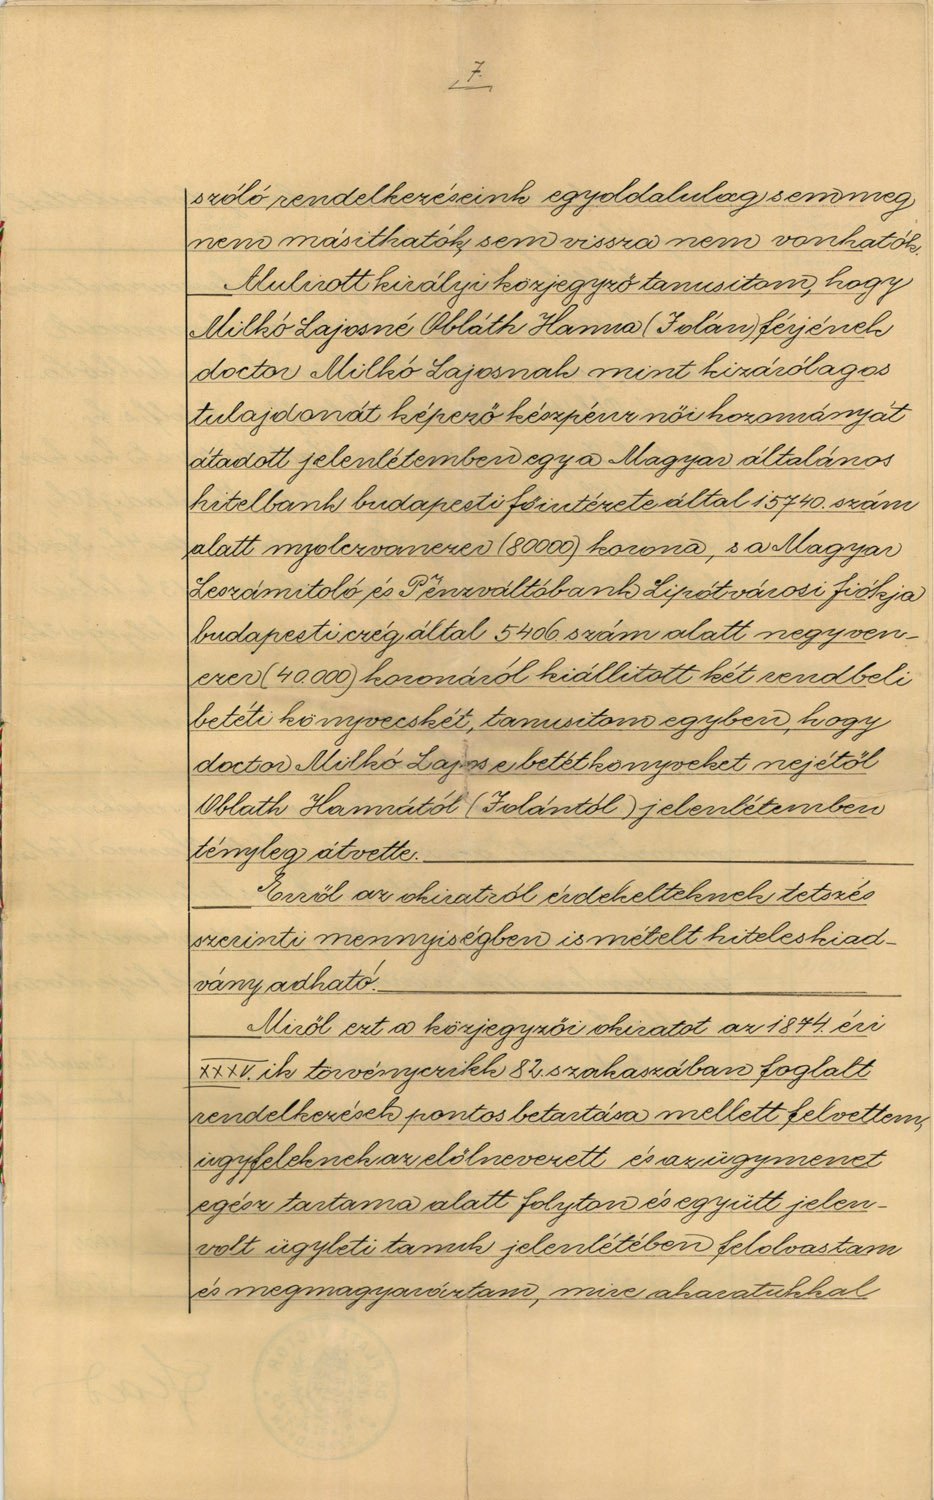 7.
szóló rendelkezéseink egyoldalulag sem meg
nem másithatók, sem vissza nem vonhatók.
Mulirott királyi közjegyző tanusitom, hogy
Milkó Lajosné Obláth Hanna (Jolán) férjének
doctor Milkó Lajosnak mint kizárólagos
tulajdonát képező készpénz női hozományát
átadott jelenlétemben egy a Magyar általános
hitelbank budapesti főintézete által 15740. szám
alatt nyolczvanezer (80000) korona, s a Magyar
Leszámitoló és Pénzváltóbank Lipótvárosi fiókja
budapesti czég által 5406 szám alatt negyven-
ezer (40.000) koronáról kiállitott két rendbeli
betéti könyvecskét, tanusitom egyben, hogy
doctor Milkó Lajos e betétkönyveket nejétől
Oblath Hannától (Jolántól) jelenlétemben
tényleg átvette.
Erről az okiratról érdekelteknek tetszés
szerinti mennyiségben ismételt hiteles kiad-
vány adható.
Miről ezt a közjegyzői okiratot az 1874. évi
XXXV. ik törvényczikk 82. szakaszában foglalt
rendelkezések pontos betartása mellett felvettem,
ügyfeleknek az előlnevezett és az ügymenet
egész tartama alatt folyton és együtt jelen-
volt ügyleti tanuk jelenlétében felolvastam
és megmagyaráztam, mire akaratukkal